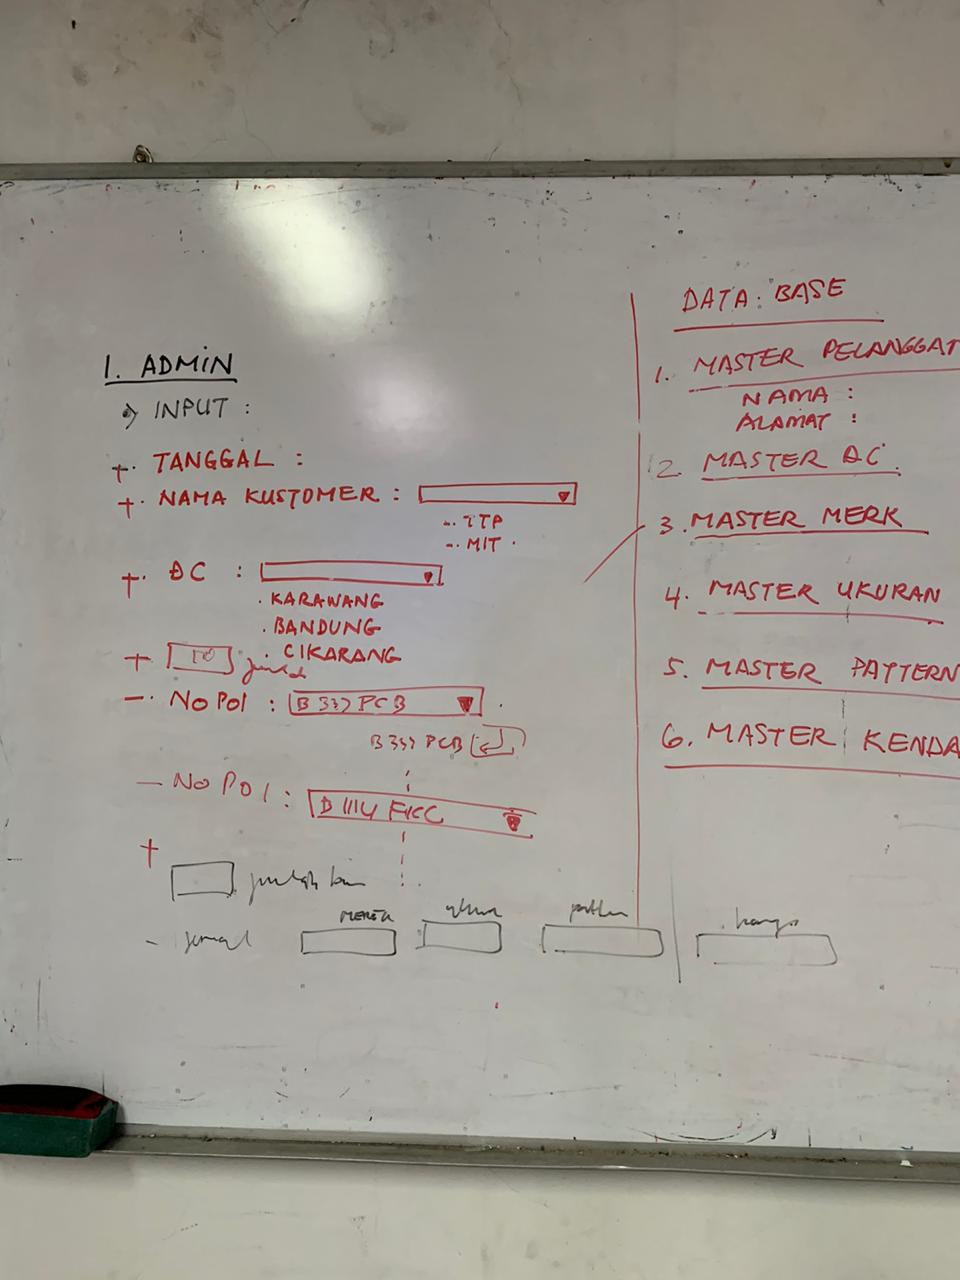 1. ADMIN
INPUT :
+. TANGGAL :
+. NAMA KUSTOMER :
-. TTP
-. MIT
+. DC :
. KARAWANG
. BANDUNG
. CIKARANG
+
-. NO POL :
PCB
PCB
- NO POL :
+
jumlah ban
-
MEREK
ukuran
pattern
harga
DATA BASE
1. MASTER PELANGGAT
NAMA :
ALAMAT :
2. MASTER DC.
3. MASTER MERK
4. MASTER UKURAN
5. MASTER PATTERN
6. MASTER KENDA